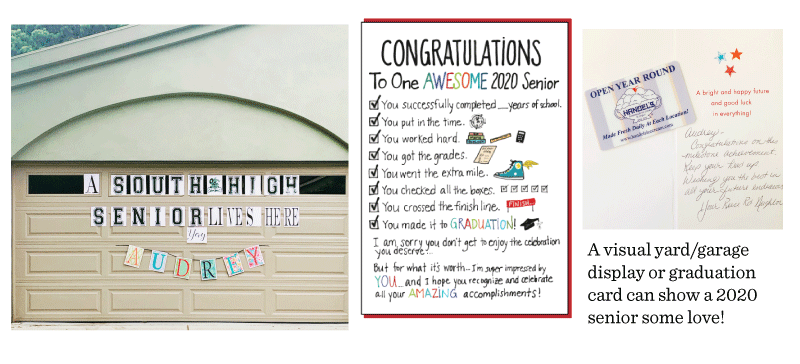 A SOUTH HIGH
SENIOR LIVES HERE
Yay
AUDREY
CONGRATULATIONS
To One AWESOME 2020 Senior
You successfully completed __ years of school.
You put in the time.
You worked hard.
You got the grades.
You went the extra mile.
You checked all the boxes.
You crossed the finish line. FINISH
You made it to GRADUATION!
I am sorry you don't get to enjoy the celebration
you deserve!
But for what it's worth... I'm super impressed by
YOU... and I hope you recognize and celebrate
all your AMAZING accomplishments!
OPEN YEAR ROUND
HANDEL'S
Made Fresh Daily At Each Location!
A bright and happy future
and good luck
in everything!
Audrey-
Congratulations on this
milestone achievement.
Keep your head up.
Wishing you the best in
all your future endeavors
Your Neighbor
A visual yard/garage
display or graduation
card can show a 2020
senior some love!